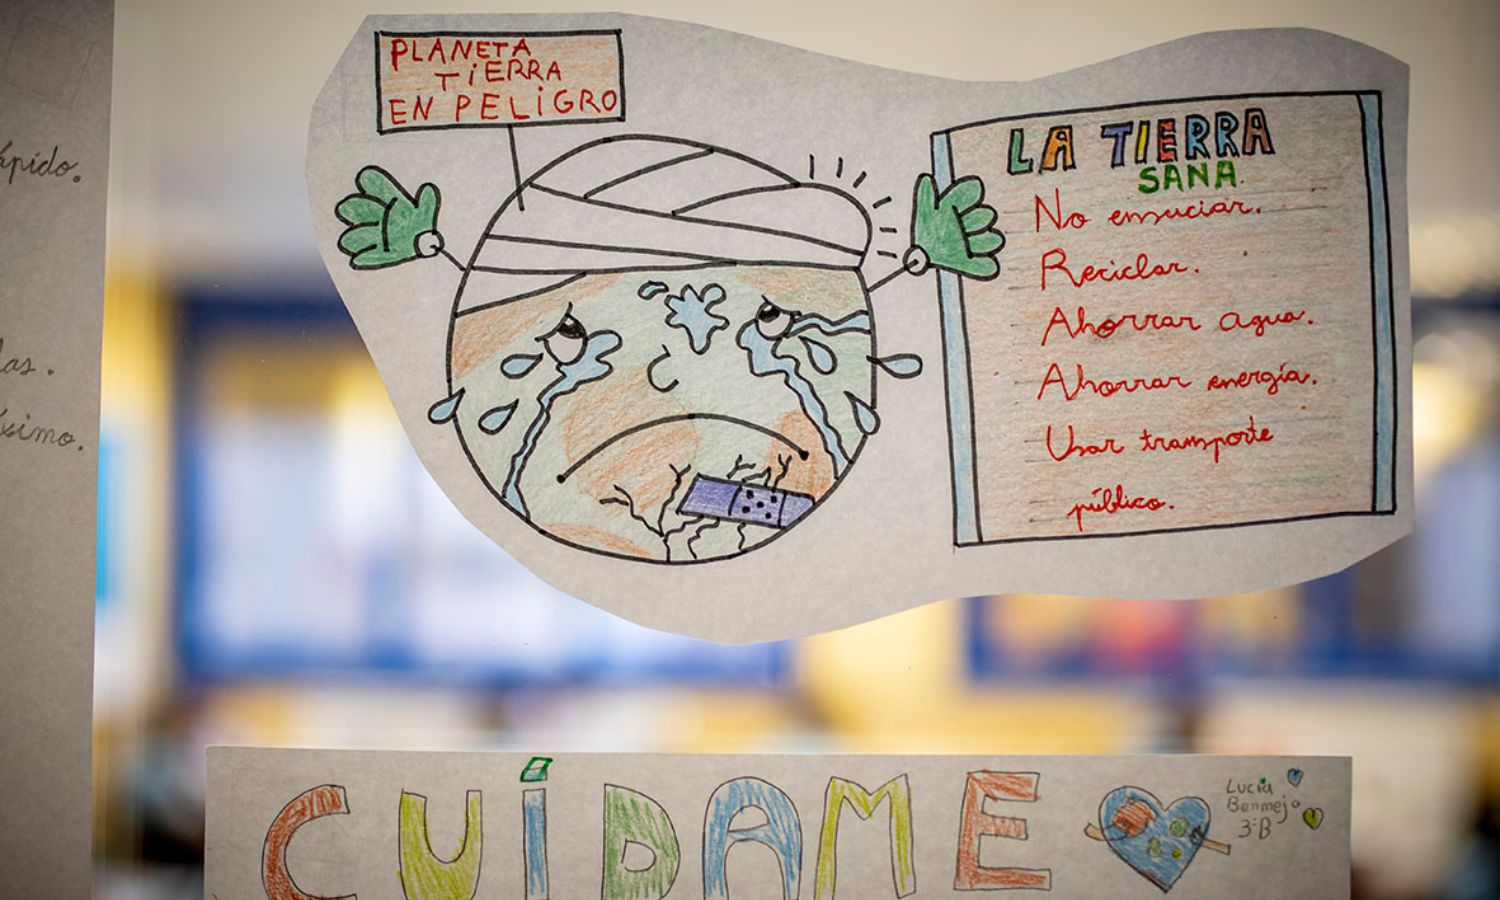 PLANETA
TiERRA
EN PELiGRO
LA TIERRA
SANA.
No ensuciar.
Reciclar.
Ahorrar agua.
Ahorrar energía.
Usar transporte
público.
CUÍDAME
Lucía
Bermejo
3ºB